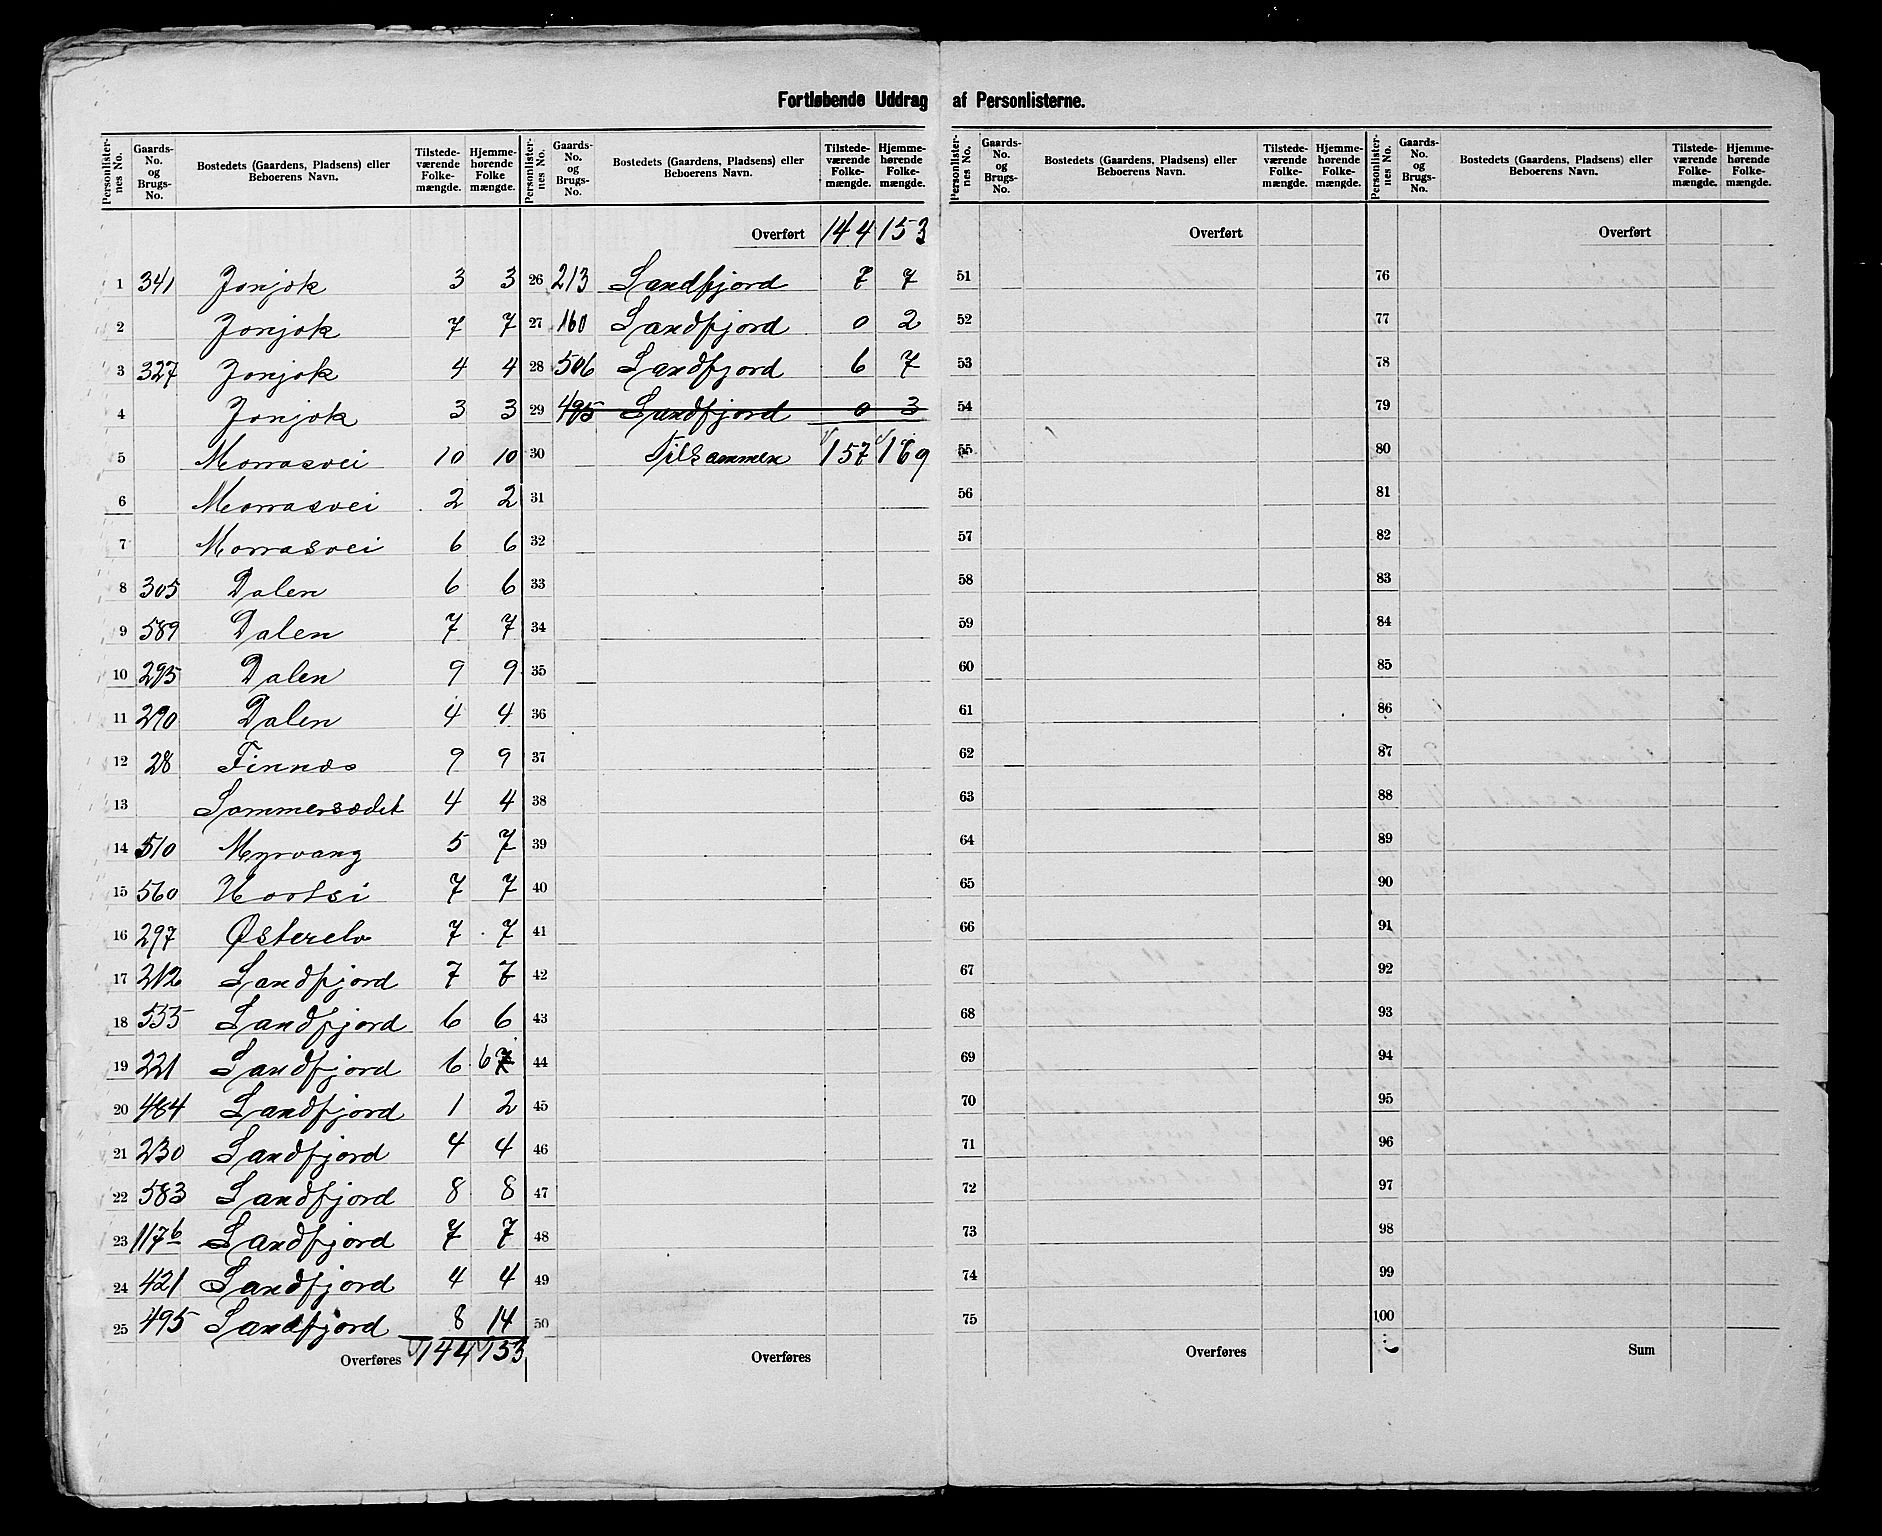 Fortløbende Uddrag af Personlisterne.
Personlister-nes No. Gaards-No. og Brugs-No. Bostedets (Gaardens, Pladsens) eller Beboerens Navn. Tilstede-værende Folke-mængde. Hjemme-hørende Folke mængde.
1 341 Jonjok 3 3
2 Jonjok 7 7
3 327 Jonjok 4 4
4 Jonjok 3 3
5 Morrasvei 10 10
6 Morrasvei 2 2
7 Morrasvei 6 6
8 305 Dalen 6 6
9 589 Dalen 7 7
10 295 Dalen 9 9
11 290 Dalen 4 4
12 28 Finnæs 9 9
13 Sommersædet 4 4
14 510 Myrvang 5 7
15 560 Hootsi 7 7
16 297 Østerelv 7 7
17 212 Sandfjord 7 7
18 555 Sandfjord 6 6
19 221 Sandfjord 6 6 7
20 484 Sandfjord 1 2
21 230 Sandfjord 4 4
22 583 Sandfjord 8 8
23 117b Sandfjord 7 7
24 421 Sandfjord 4 4
25 495 Sandfjord 8 14
Overføres 144 153
Personlister-nes No. Gaards-No. og Brugs-No. Bostedets (Gaardens, Pladsens) eller Beboerens Navn. Tilstede-værende Folke-mængde. Hjemme-hørende Folke-mængde.
Overført 144 153
26 213 Sandfjord 7 7
27 160 Sandfjord 0 2
28 506 Sandfjord 6 7
29 495 Sandfjord 0 3
30 Tilsammen 157 169
31
32
33
34
35
36
37
38
39
40
41
42
43
44
45
46
47
48
49
50
Overføres
Personlister-nes No. Gaards-No. og Brugs-No. Bostedets (Gaardens, Pladsens) eller Beboerens Navn. Tilstede-værende Folke-mængde. Hjemme-hørende Folke-mængde.
Overført
51
52
53
54
55
56
57
58
59
60
61
62
63
64
65
66
67
68
69
70
71
72
73
74
75
Overføres
Personlister-nes No. Gaards-No. og Brugs-No. Bostedets (Gaardens, Pladsens) eller Beboerens Navn. Tilstede-værende Folke-mængde. Hjemme-hørende Folke-mængde.
Overført
76
77
78
79
80
81
82
83
84
85
86
87
88
89
90
91
92
93
94
95
96
97
98
99
100
Sum